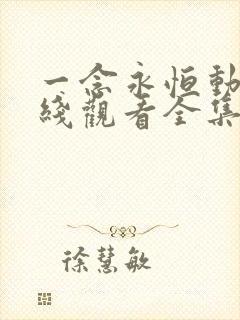 一念永恒動
綫觀看全集
徐慧敏